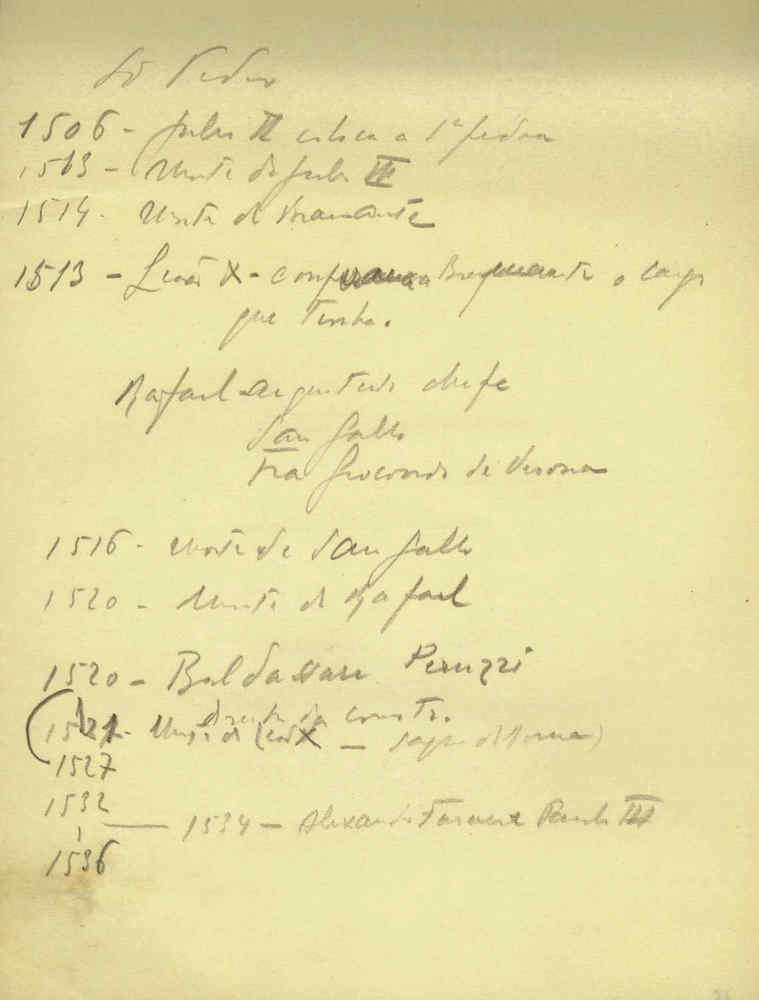 São Pedro
1506 - Julio II coloca a 1ª pedra
1513 - Morte de Julio II
1514 - Morte de Bramante
1513 - Leão X - confirma a Bramante o cargo
que tinha.
Rafael - arquiteto chefe
San Gallo
Fra Giocondo de Verona
1516 - Morte de San Gallo
1520 - Morte de Rafael
1520 - Baldassare Peruzzi
da constr.
1521 - Morte de Leão X - saque de Roma)
1527
1532
1534 - Alexandre Farnese Paulo III
1536